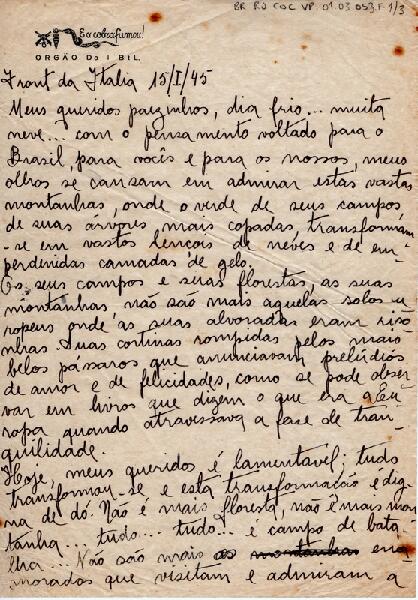 BR RJ COC VP 01.03.053.F1/3
E a cobra fumou!
ORGÃO DO I BIL.
Front da Italia 15/I/45
Meus queridos paizinhos, dia frio... muita
neve... com o pensamento voltado para o
Brasil, para vocês e para os nossos, meus
olhos se cansam em admirar estas vastas
montanhas, onde o verde de seus campos
de suas árvores mais copadas, transformam
-se em vastos lencois de neves e de em-
perdenidas camadas de gelo.
Os seus campos e suas florestas, as suas
montanhas não são mais aquelas solos eu
ropeus onde as suas alvoradas eram riso
nhas. Suas cortinas rompidas pelos mais
belos pássaros que anunciavam prelúdios
de amor e de felicidades, como se pode obser
var em livros que dizem o que era a Eu
ropa quando atravessava a fase de tran
quilidade.
Hoje, meus queridos é lamentavel; tudo
transformou-se e esta transformacão é dig
na de dó. Não é mais floresta, não é mais mon
tanha... tudo... tudo... é campo de bata
lha... Não são mais os montanhas ena
morados que visitam e admiram a